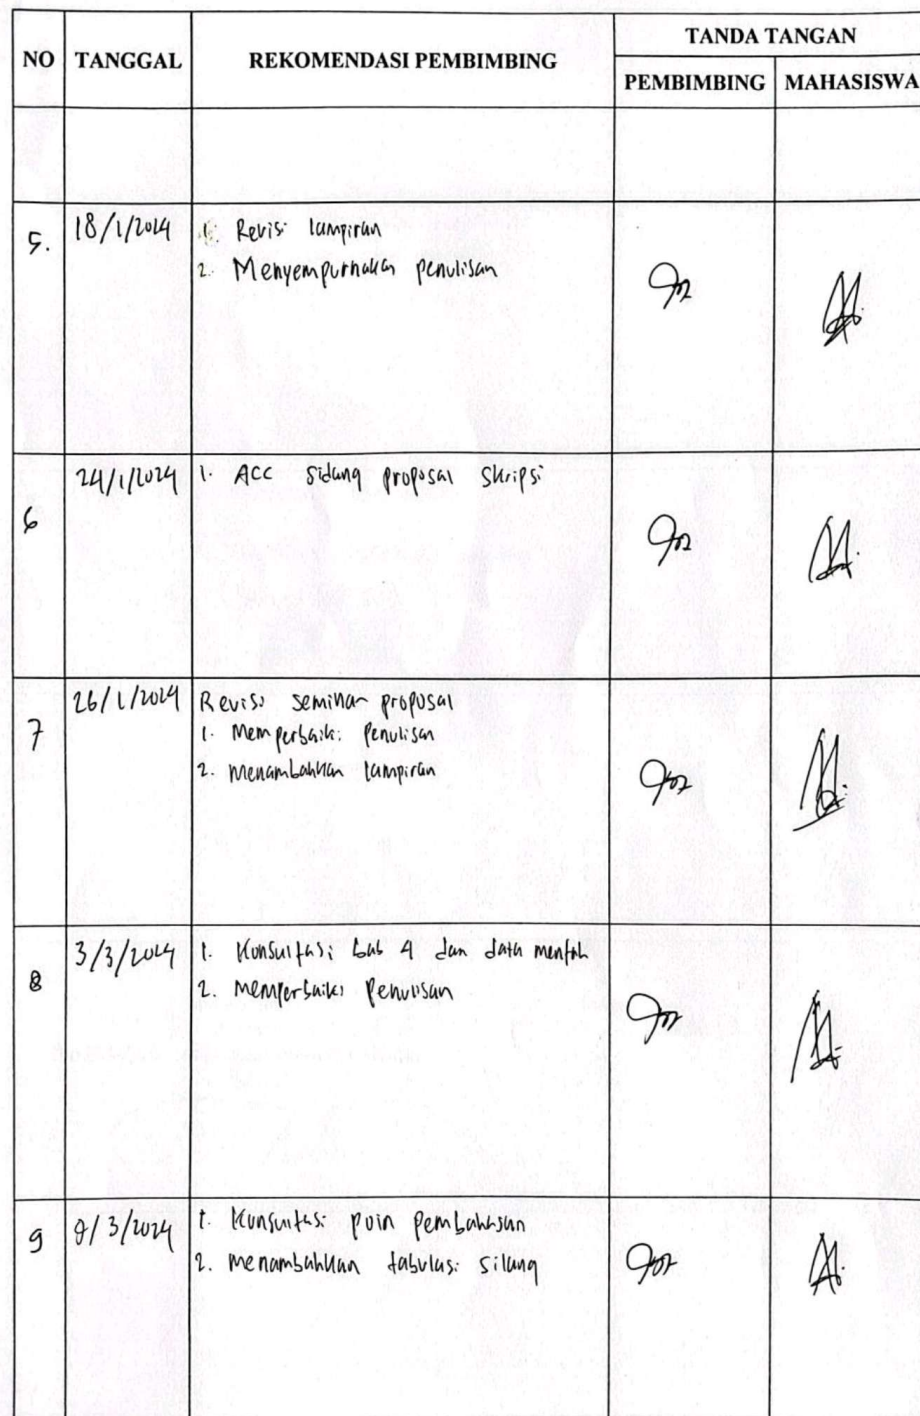 NO TANGGAL REKOMENDASI PEMBIMBING TANDA TANGAN
PEMBIMBING MAHASISWA
5. 18/1/2024 1. Revisi lampiran
2. Menyempurnakan penulisan
6 24/1/2024 1. ACC sidang proposal skripsi
7 26/1/2024 Revisi seminar proposal
1. Memperbaiki penulisan
2. Menambahkan lampiran
8 3/3/2024 1. Konsultasi bab 4 dan data mentah
2. Memperbaiki penulisan
9 /3/2024 1. Konsultasi poin pembahasan
2. Menambahkan tabulasi silang